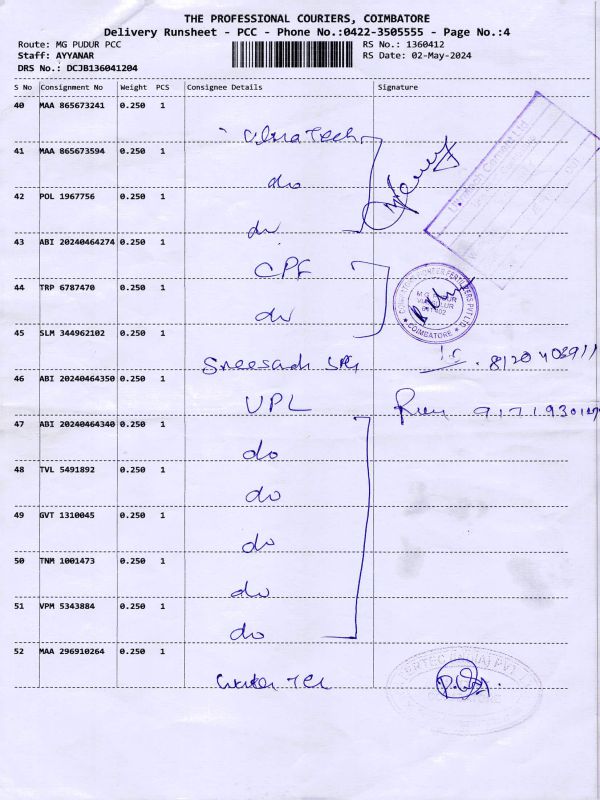 THE PROFESSIONAL COURIERS, COIMBATORE
Delivery Runsheet - PCC - Phone No.:0422-3505555 - Page No.:4
Route: MG PUDUR PCC RS No.: 1360412
Staff: AYYANAR RS Date: 02-May-2024
DRS No.: DCJB136041204
S No Consignment No Weight PCS Consignee Details Signature
40 MAA 865673241 0.250 1
UltraTech
41 MAA 865673594 0.250 1
do
42 POL 1967756 0.250 1
do
43 ABI 20240464274 0.250 1
CPF
44 TRP 6787470 0.250 1
do
COIMBATORE
45 SLM 344962102 0.250 1
46 ABI 20240464350 0.250 1
UPL
47 ABI 20240464340 0.250 1
do
48 TVL 5491892 0.250 1
do
49 GVT 1310045 0.250 1
do
50 TNM 1001473 0.250 1
do
51 VPM 5343884 0.250 1
do
52 MAA 296910264 0.250 1